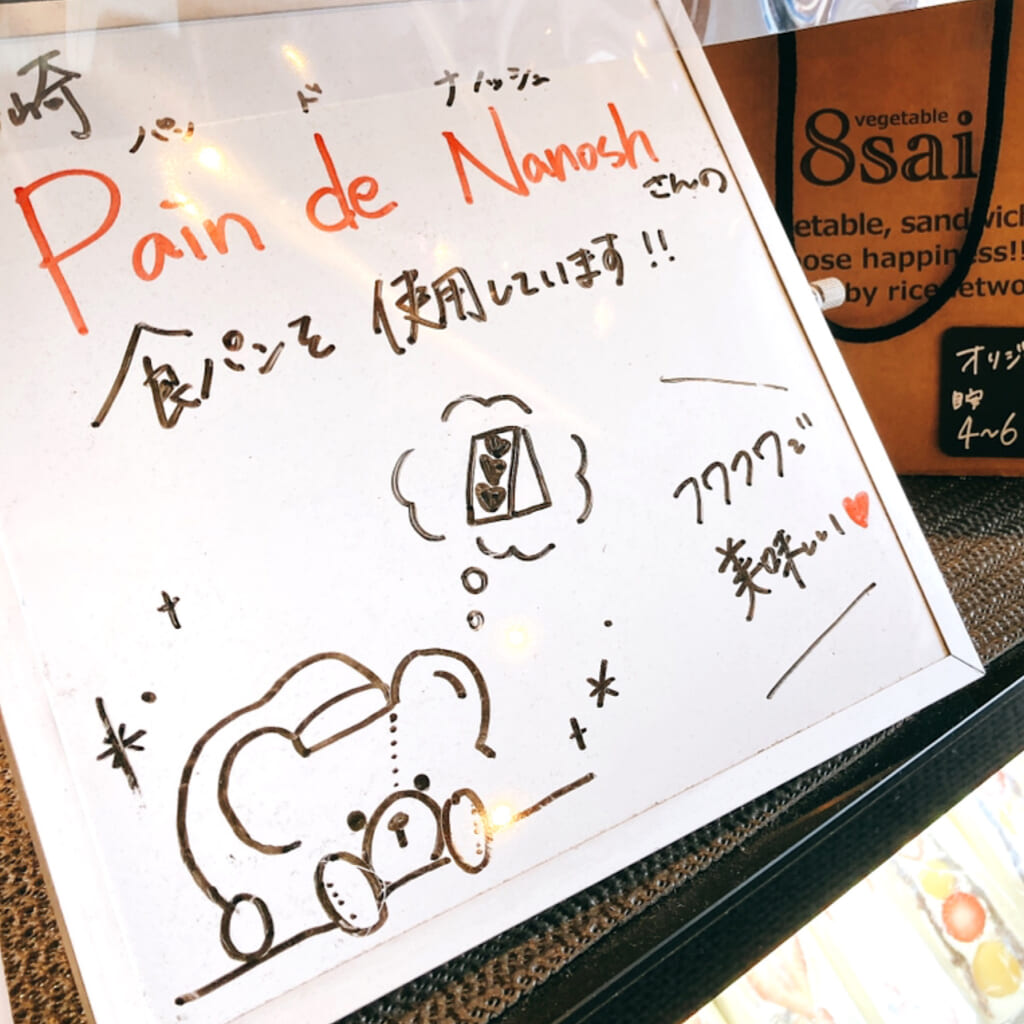 崎
パン ド ナノッシュ
Pain de Nanosh
さんの
食パンを使用しています!!
フワフワで
美味しい♥
vegetable
8sai
etable, sandwich
ose happiness!!
by rice netwo
オリジ
4~6